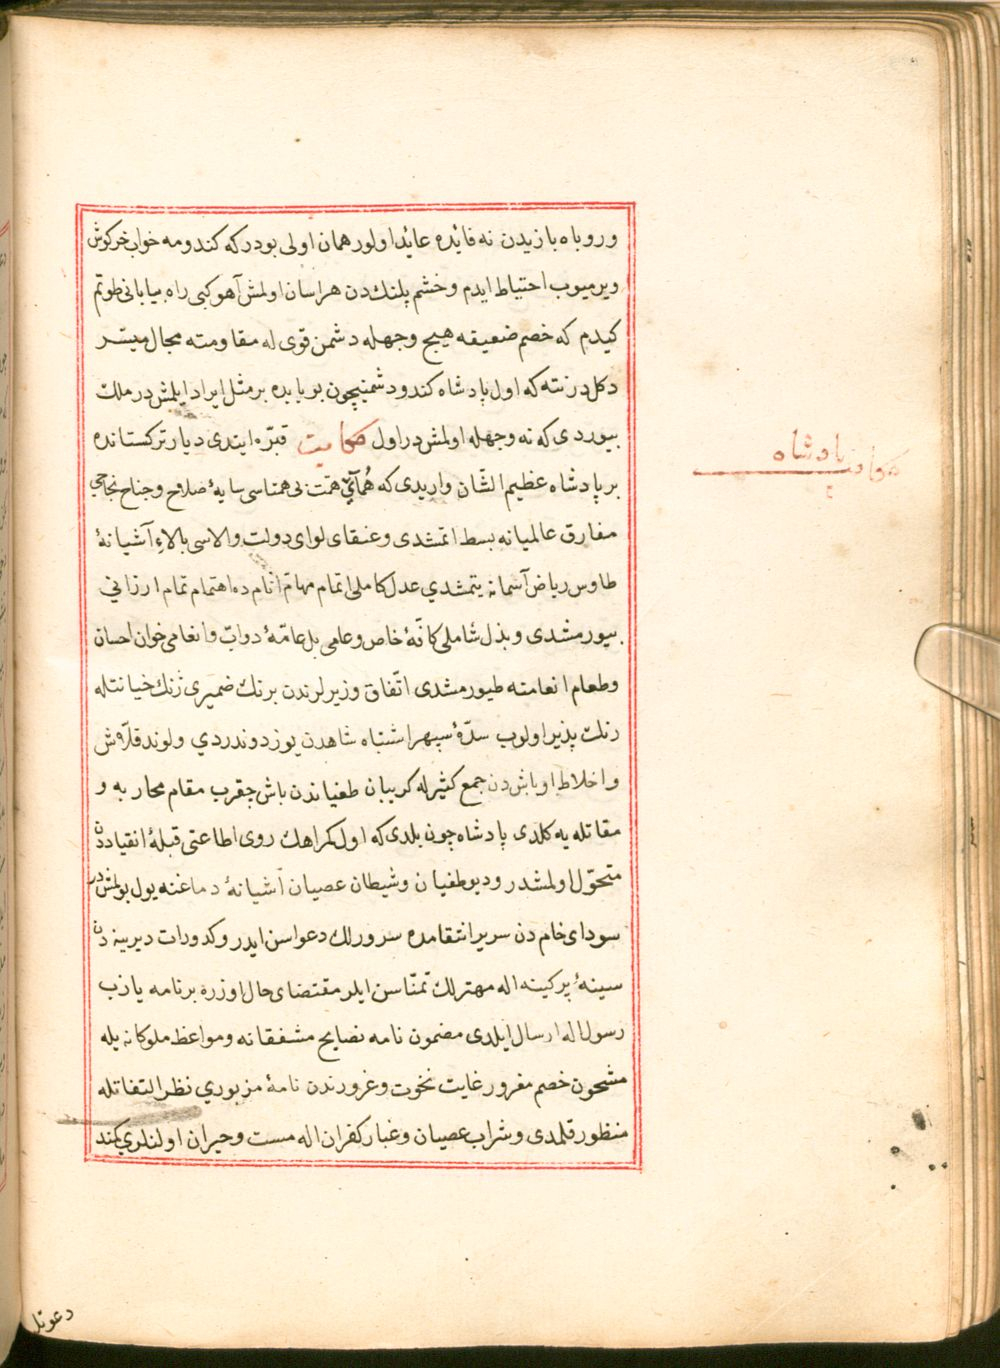 وروباه بازیدن نه فائده عائد اولور همان اولی بودركه كندومه خواب خركوش
ویرمیوب احتیاط ایدم وخشم پلنكدن هراسان اولمش آهو كبی راه بیابانی طوتم
كیدم كه خصم ضعیفه هیچ وجهله دشمن قوی له مقاومته مجال میسّر
دكلدر نته كه اول پادشاه كندو دشمنیچون بو بابده بر مثل ایراد ایلمش در ملك
بیوردی كه نه وجهله اولمش در اول حكایت قبّره ایتدی دیار تركستانده
بر پادشاه عظیم الشّان واریدی كه همای همّت بی همتاسی سایۀ صلاح وجناح نجاحی
مفارق عالمیانه بسط اتمشدی وعنقای لوای دولت والاسی بالاء آشیانۀ
طاوس ریاض آسمانه یتمشدي عدل كاملی اتمام مهامّ انامده اهتمام تمام ارزاني
بیورمشدی وبذل شاملی كافّۀ خاص وعامی بل عامّۀ دوابّ وانعامی خوان احسان
وطعام انعامنه طیورمشدی اتّفاق وزیرلرندن برنك ضمیری ژنك خیانتله
رنك پذیر اولوب سدّۀ سپهر اشتباه شاهدن یوز دوندردي ولوند قلّاش
واخلاط اوباش دن جمع كثیرله كریبان طغیاندن باش چقرب مقام محاربه و
مقاتله یه كلدی پادشاه چون بلدی كه اول كمراهك روی اطاعتی قبلۀ انقیاددن
متحوّل اولمشدر ودیو طغیان وشیطان عصیان آشیانۀ دماغنه یول بولمش در
سودای خام دن سریر انتقامده سرورلك دعواسن ایدر وكدورات دیرینه دن
سینۀ پر كینه اله مهترلك تمنّاسن ایلر مقتضای حال اوزره برنامه یازب
رسول اله ارسال ایلدی مضمون نامه نصایح مشفقانه ومواعظ ملوكانه یله
مشحون خصم مغرور غایت نخوت وغروردن نامۀ مزبوري نظر التفاتله
منظور قلمدی وشراب عصیان وغبار كفران اله مست وحیران اولنلري كند
دعوتله
پادشاه